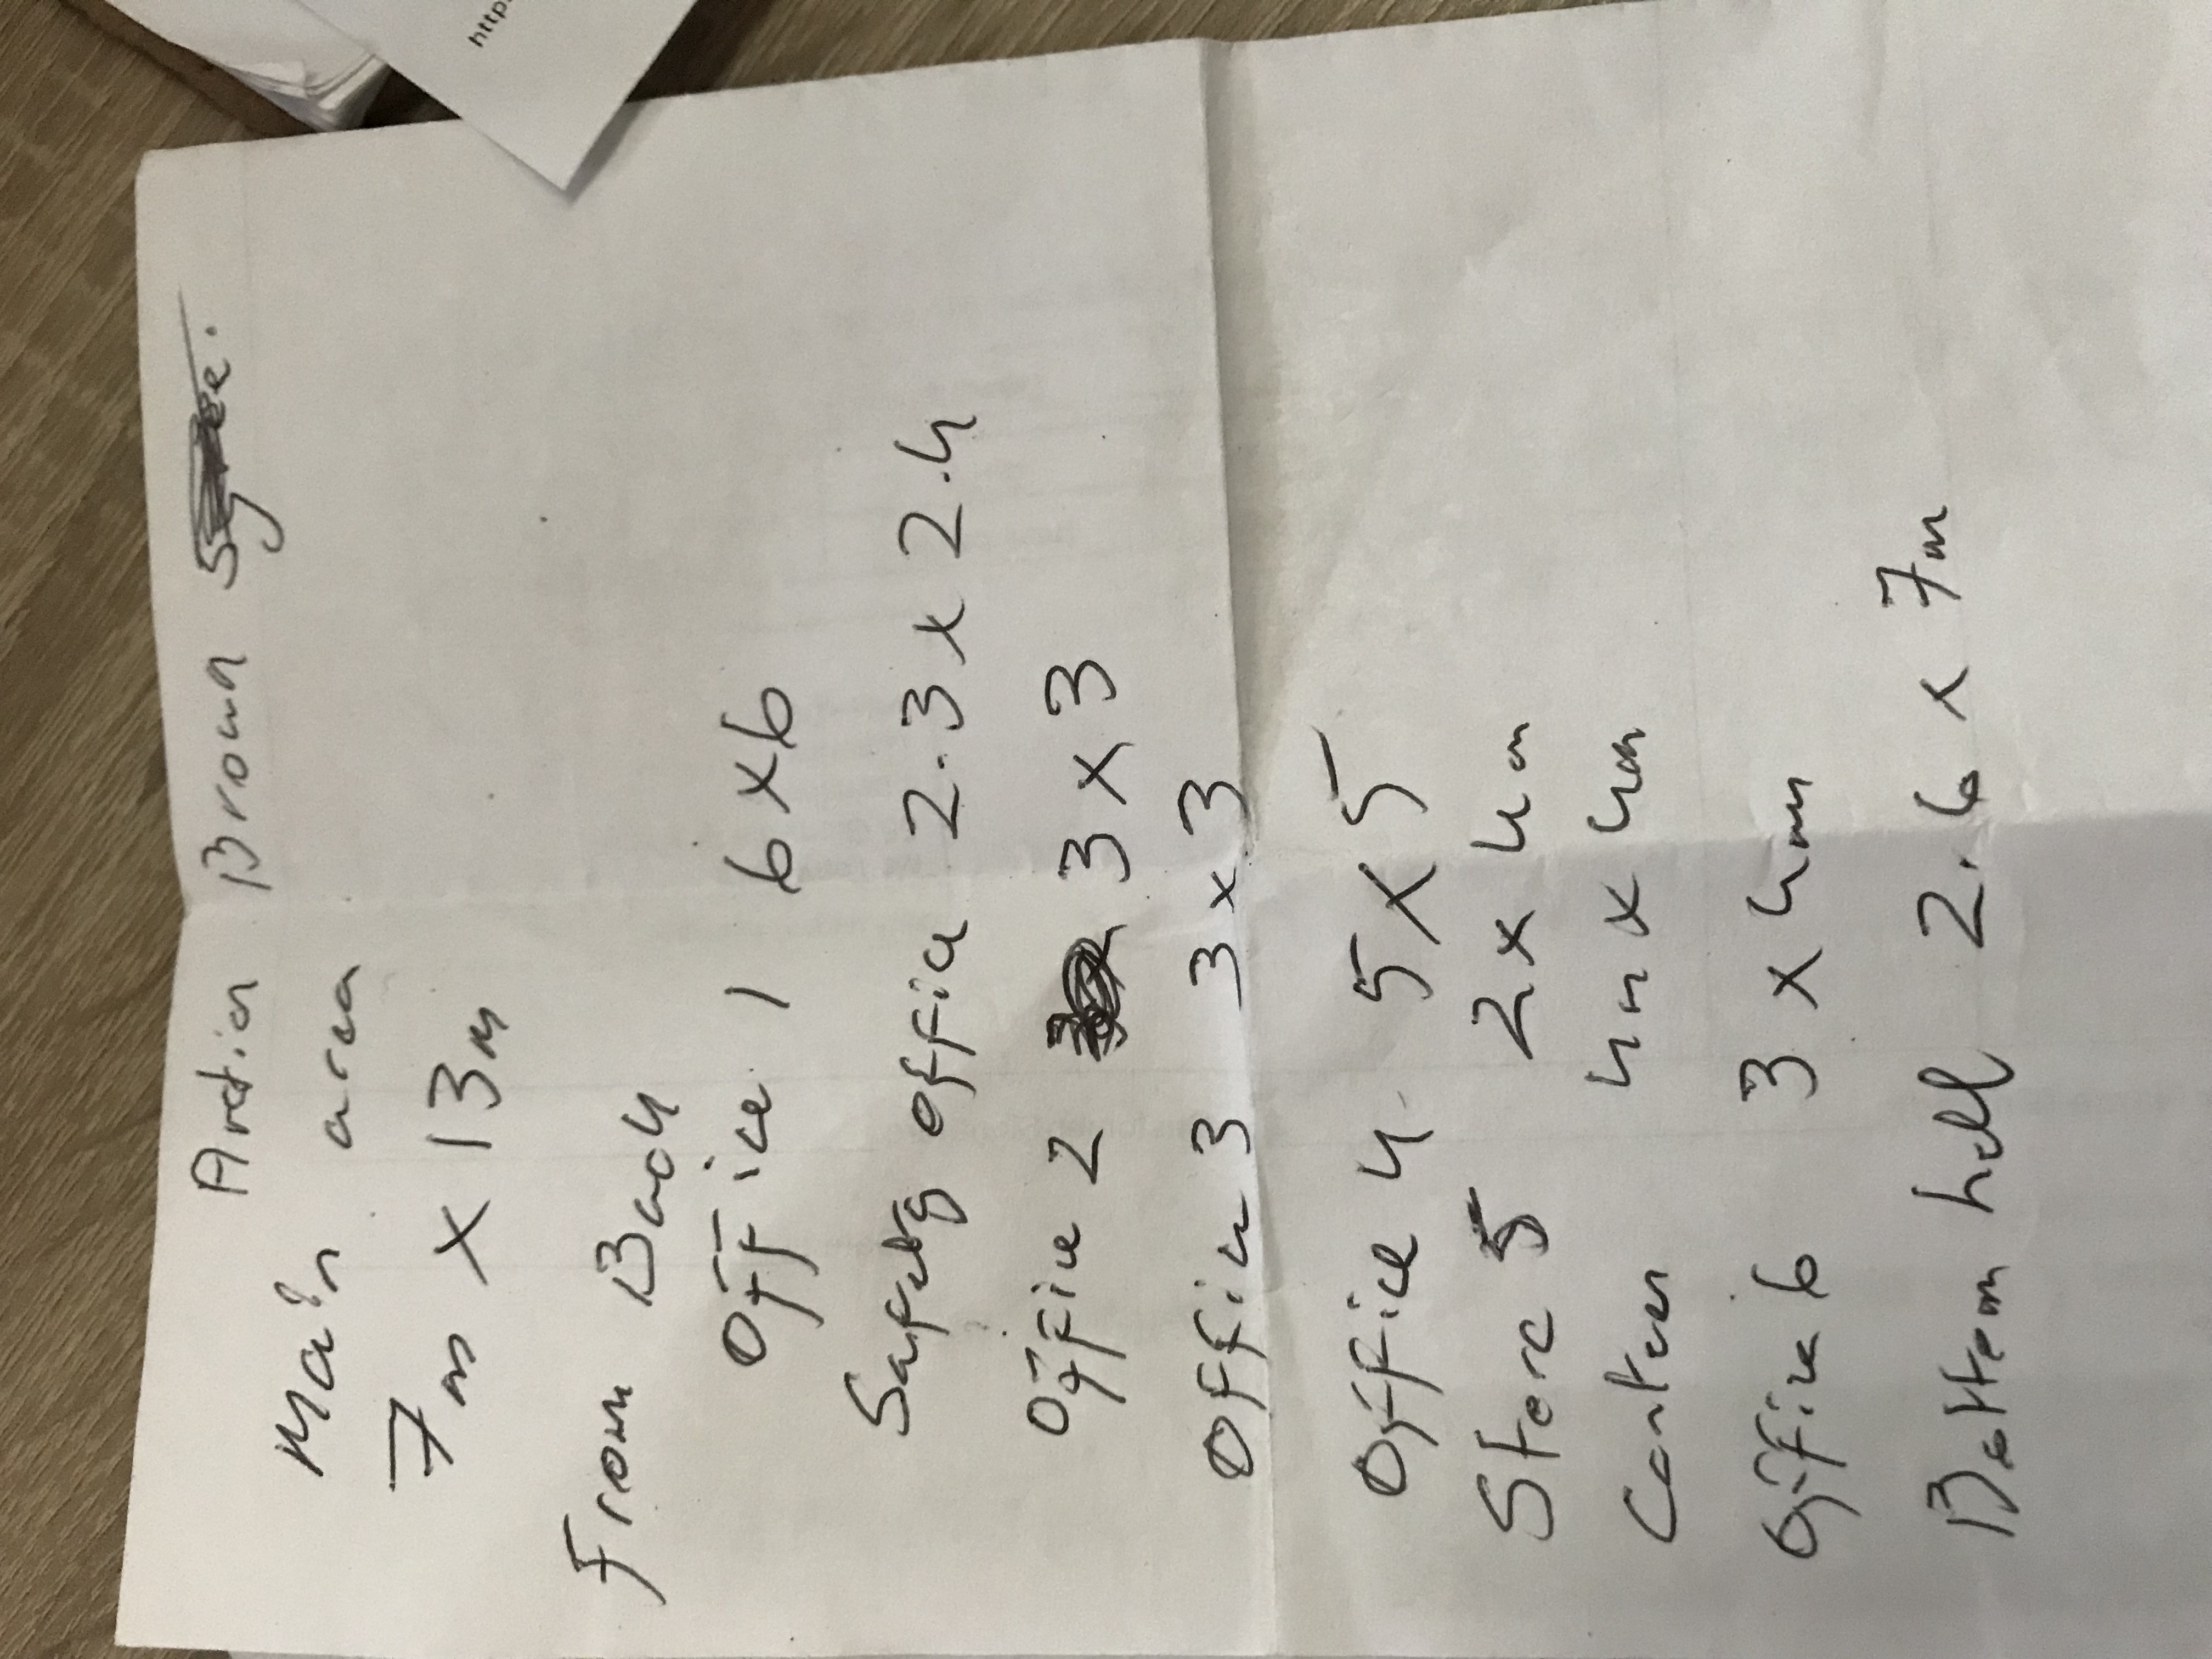 http
Brown
Main area
7m x 13m
From Back
Office 1 6 x 6
Safety office 2.3 x 2.4
Office 2 3 x 3
Office 3 3 x 3
Office 4 5 x 5
Store 5 2 x 4m
Canteen 4m x 4m
Office 6 3 x 4m
Bottom hall 2.6 x 7m